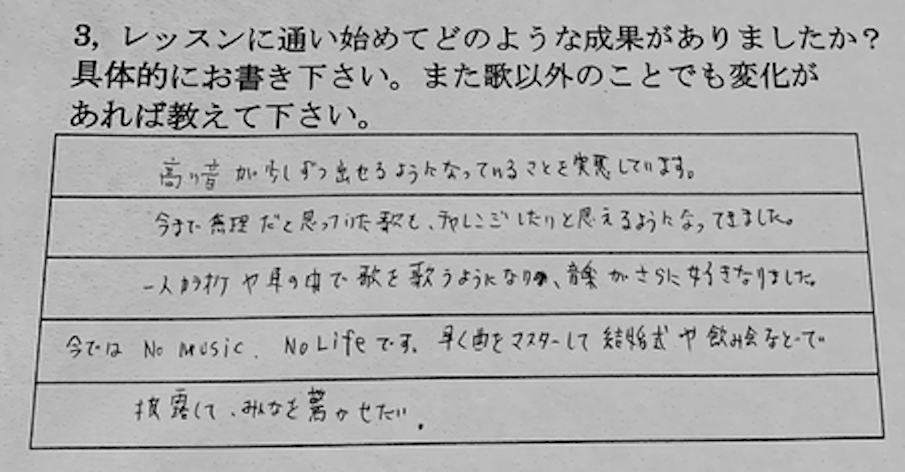 3, レッスンに通い始めてどのような成果がありましたか?
具体的にお書き下さい。また歌以外のことでも変化が
あれば教えて下さい。
高い音が少しずつ出せるようになっていることを実感しています。
今まで無理だと思っていた歌も、チャレンジしたいと思えるようになってきました。
一人カラオケや車の中で歌を歌うようになり、音楽がさらに好きなりました。
今では No music. No Life です。早く曲をマスターして結婚式や飲み会などで
披露して、みんなを驚かせたい。